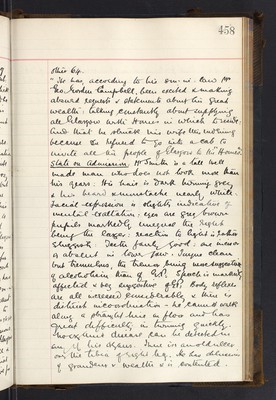 458
other 64.
"He has, according to his son-in-law Mr
Geo. Gordon Campbell, been excited & making
absurd requests & statements about his great
wealth: talking constantly about supplying
all Glasgow with Homes in which to reside.
And that he struck his wife this morning
because she refused to go into a cab to
invite all the people of Glasgow to his Homes".
State on admission. Mr Smith is a tall well
made man who does not look more than
his years. His hair is dark turning grey,
& his beard & moustache nearly white.
Facial expression is slightly indicative of
mental exaltation; eyes are grey brown
pupils markedly unequal the right
being the larger, reaction to light is rather
sluggish. Teeth fairly good: one incisor
is absent in lower jaw. Tongue clean
but tremulous, the tremor being more suggestive
of alcoholism than of G.P. Speech is markedly
affected & very suggestive of G.P. Body reflexes
are all increased considerably & there is
distinct incoordination - he cannot walk
along a straight line on floor and has
great difficulty in turning quickly.
No organic disease can be detected in
any of his organs. There is an old ulcer
over the tibia of right leg. He has delusions
of grandeur & wealth & is exalted.